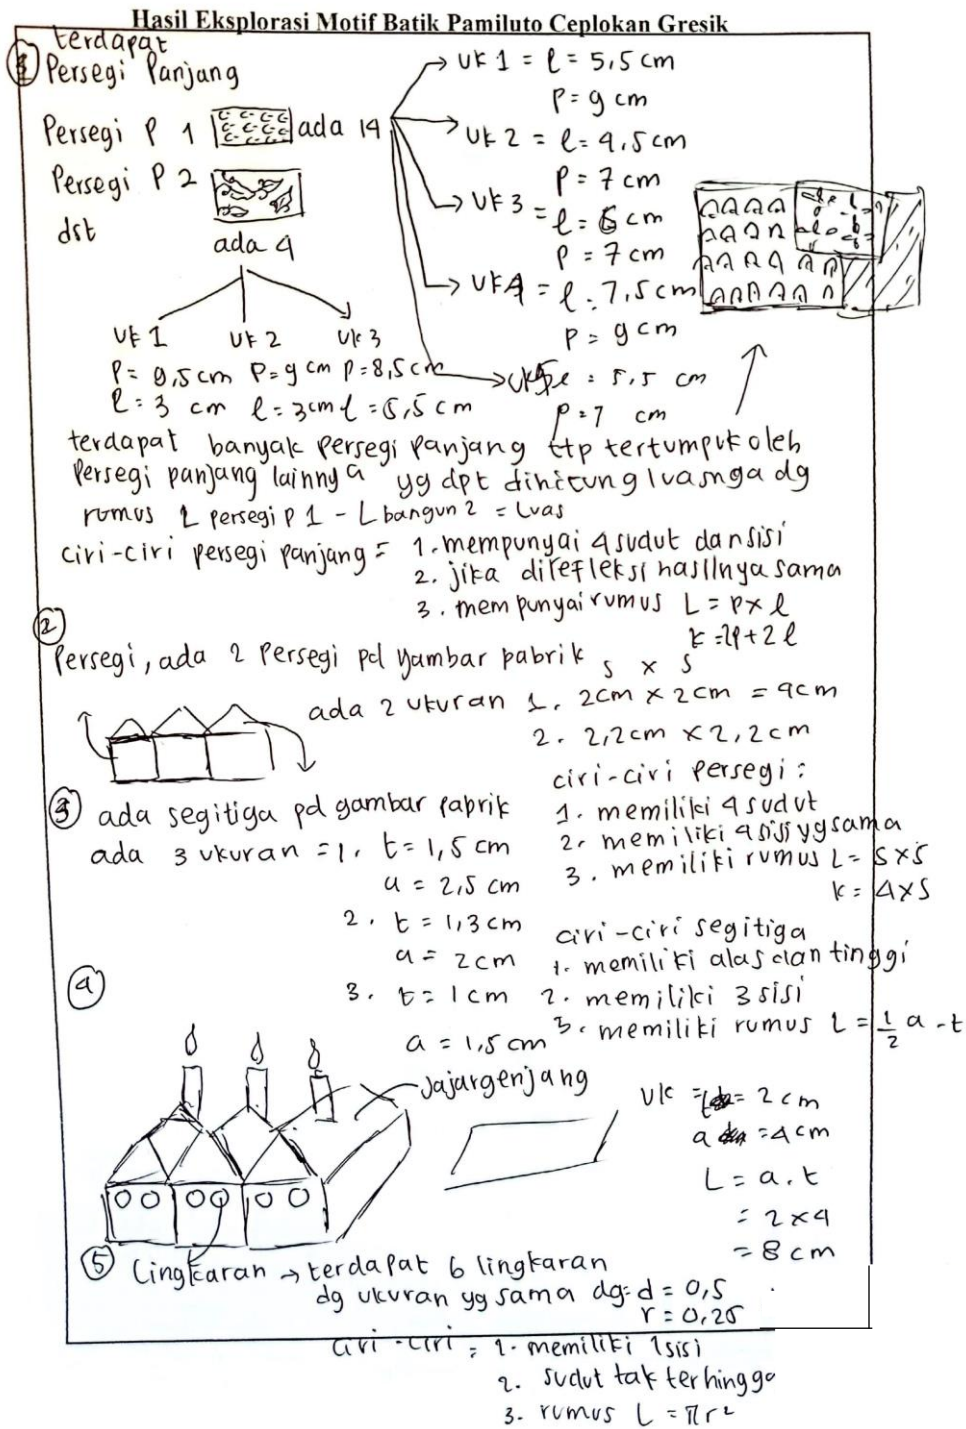 Hasil Eksplorasi Motif Batik Pamiluto Ceplokan Gresik
terdapat
① Persegi Panjang
Persegi P 1 ada 14
Persegi P 2
dst
ada 4
Uk 1 Uk 2 Uk 3
P = 9,5 cm P = 9 cm P = 8,5 cm
l = 3 cm l = 3 cm l = 5,5 cm
Uk 1 = l = 5,5 cm
P = 9 cm
Uk 2 = l = 4,5 cm
P = 7 cm
Uk 3 = l = 6 cm
P = 7 cm
Uk 4 = l = 7,5 cm
P = 9 cm
Uk 5 l = 5,5 cm
P = 7 cm
terdapat banyak Persegi Panjang ttp tertumpuk oleh
Persegi panjang lainnya yg dpt dihitung luasnya dg
rumus L persegi P 1 - L bangun 2 = Luas
ciri-ciri persegi panjang = 1. mempunyai 4 sudut dan sisi
2. jika direfleksi hasilnya sama
3. mempunyai rumus L = P x l
k = 2P + 2 l
②
Persegi, ada 2 Persegi pd gambar pabrik
s x s
ada 2 ukuran 1. 2cm x 2cm = 4cm
2. 2,2cm x 2,2cm
ciri-ciri Persegi :
1. memiliki 4 sudut
2. memiliki 4 sisi yg sama
3. memiliki rumus L = S x S
k = 4 x S
③ ada segitiga pd gambar pabrik
ada 3 ukuran = 1. t = 1,5 cm
a = 2,5 cm
2. t = 1,3 cm
a = 2 cm
3. t = 1 cm
a = 1,5 cm
ciri-ciri segitiga
1. memiliki alas dan tinggi
2. memiliki 3 sisi
3. memiliki rumus L = 1/2 a . t
④
Jajargenjang
Uk = t = 2 cm
a = 4 cm
L = a . t
= 2 x 4
= 8 cm
⑤ Lingkaran → terdapat 6 lingkaran
dg ukuran yg sama dg: d = 0,5
r = 0,25
ciri - ciri : 1. memiliki 1 sisi
2. sudut tak terhingga
3. rumus L = πr²